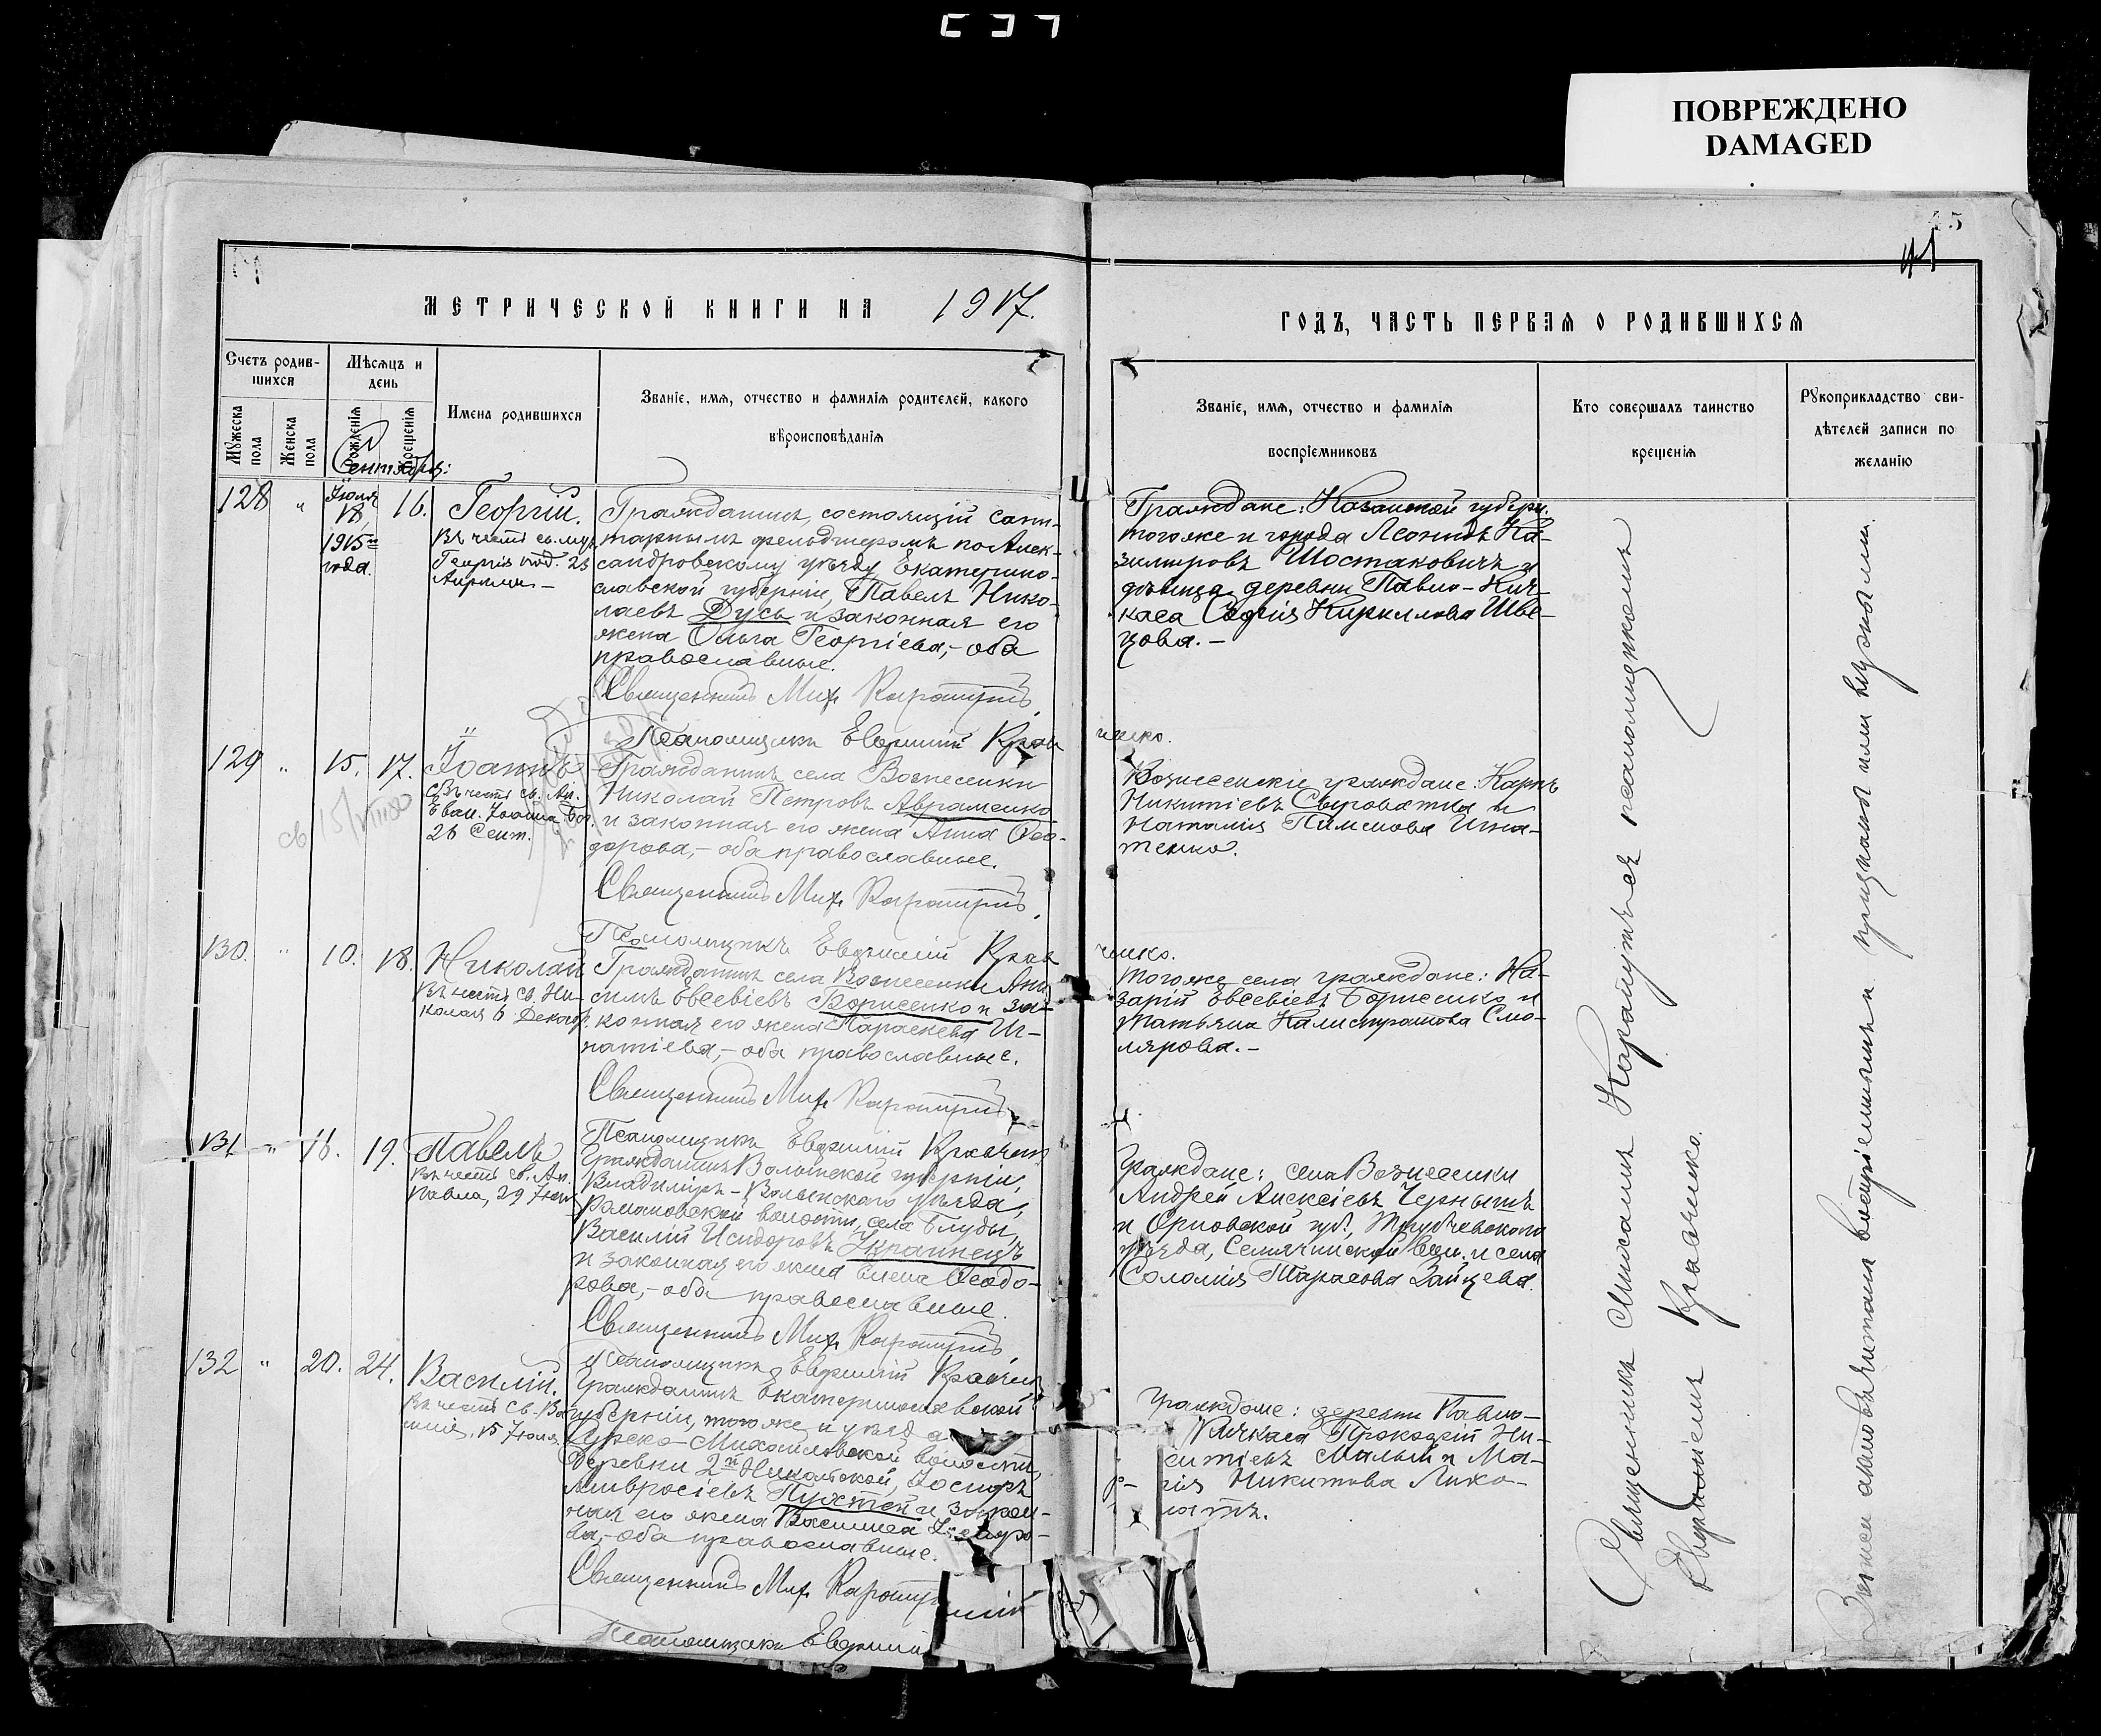 ПОВРЕЖДЕНО
DAMAGED
45
41
МЕТРИЧЕСКОЙ КНИГИ НА 1917.
ГОДЪ, ЧАСТЬ ПЕРВАЯ О РОДИВШИХСЯ
Счетъ родив-
шихся
Мужеска пола
Женска пола
Мѣсяцъ и
день
Рожденія
Крещенія
Имена родившихся
Званіе, имя, отчество и фамилія родителей, какого
вѣроисповѣданія
Званіе, имя, отчество и фамилія
воспріемниковъ
Кто совершалъ таинство
крещенія
Рукоприкладство сви-
дѣтелей записи по
желанію
Сентябрь:
128 " Іюля 18, 1915 года. 16.
Георгій.
Въ честь св. муч.
Георгія 23
Апрѣля –
Гражданинъ, состоящій сани-
тарнымъ фельдшеромъ по Алек-
сандровскому уѣзду Екатерино-
славской губерніи, Павелъ Нико-
лаевъ Дусь и законная его
жена Ольга Георгіева, – оба
православные.
Священникъ Мих. Карапутъ.
Псаломщикъ Евфимій Кравченко.
Граждане: Казанской губерн.
того же и города Леонидъ Ка-
зимировъ Шостаковичъ и
дѣвица деревни Павло-Кич-
каса Софія Кириллова Шве-
цова. –
129 " 15. 17.
Іоаннъ
Въ честь св. Ап.
Еван. Іоанна Бог.
26 Сент.
Гражданинъ села Вознесенки
Николай Петровъ Авраменко
и законная его жена Анна Ѳео-
дорова, – оба православные.
Священникъ Мих. Карапутъ.
Псаломщикъ Евфимій Кравченко.
Вознесенскіе граждане: Карпъ
Никитіевъ Сыроватка и
Наталія Пименова Игна-
тенко.
130. " 10. 18.
Николай
Въ честь св. Ни-
колая 6 Декабр.
Гражданинъ села Вознесенки Ани-
симъ Евсевіевъ Борисенко и за-
конная его жена Параскева Иг-
натіева, – оба православные.
Священникъ Мих. Карапутъ
Псаломщикъ Евфимій Кравченко
того же села граждане: На-
зарій Евсевіевъ Борисенко и
Татьяна Калистратова Смо-
лярова. –
131 " 16. 19.
Павелъ
Въ честь св. Ап.
Павла, 29 Іюня
Гражданинъ Волынской губерніи,
Владиміръ-Волынскаго уѣзда,
Романовской волости, села Блуды,
Василій Исидоровъ Украинецъ
и законная его жена Елена Ѳеодо-
рова, – оба православные.
Священникъ Мих. Карапутъ.
Псаломщикъ Евфимій Кравченко
Граждане: села Вознесенки
Андрей Алексіевъ Чернышъ
и Орловской губ., Трубчевскаго
уѣзда, Семячинской вол. и села
Соломія Тарасова Зайцева.
132 " 20. 24.
Василій.
Въ честь Св. Ва-
силія, 15 Іюля
Гражданинъ Екатеринославской
губерніи, того же и уѣзда
Сурско-Михайловской волости,
деревни 2й Никольской, Іосифъ
Амвросіевъ Пустой и закон-
ная его жена Василиса
ва, – оба православные.
Священникъ Мих. Карапутъ
Псаломщикъ Евфимій
Граждане: деревни Павло-
Кичкаса Прокофій Ни-
китіевъ Малый и Ма-
рія Никитова Лихо-
латъ.
Священникъ Михаилъ Карапутъ съ псаломщикомъ
Евфиміемъ Кравченко.